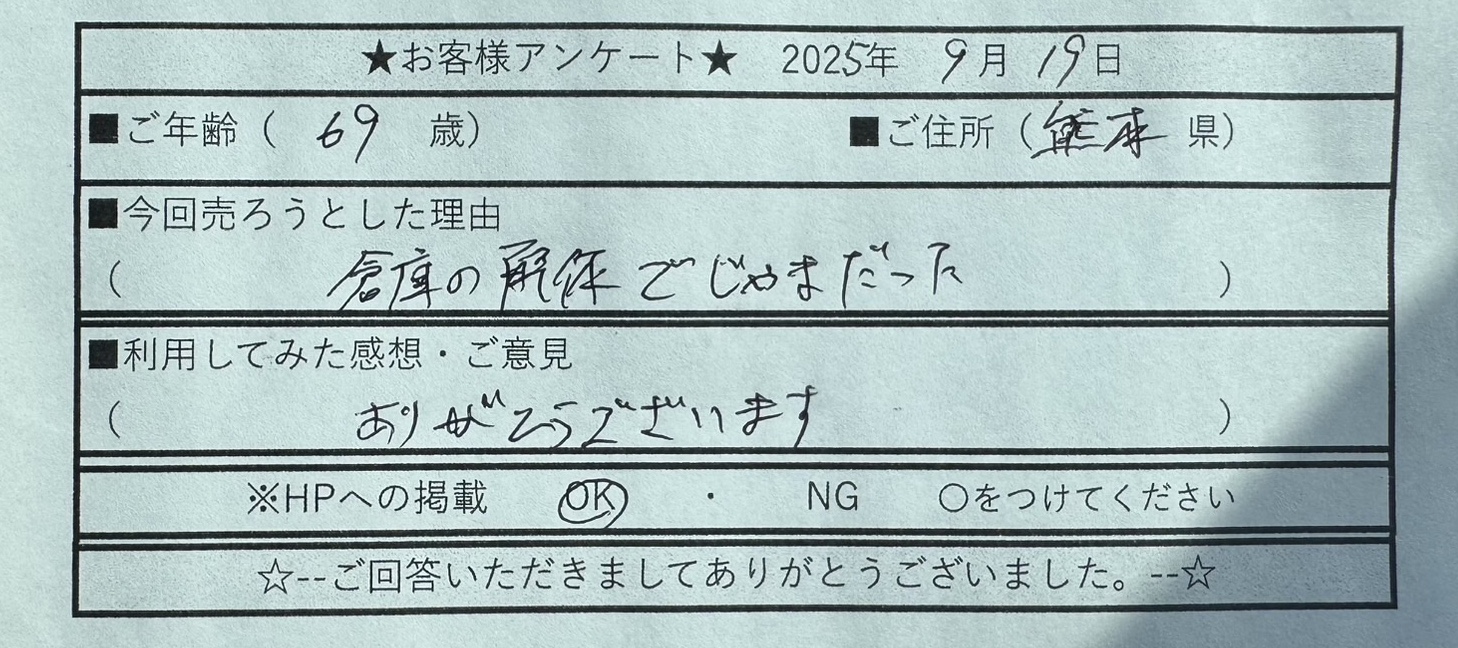 ★お客様アンケート★ 2025年 9月 19日
■ご年齢（ 69 歳） ■ご住所（熊本 県）
■今回売ろうとした理由
（ 倉庫の解体でじゃまだった ）
■利用してみた感想・ご意見
（ ありがとうございます ）
※HPへの掲載 OK ・ NG ○をつけてください
☆--ご回答いただきましてありがとうございました。--☆